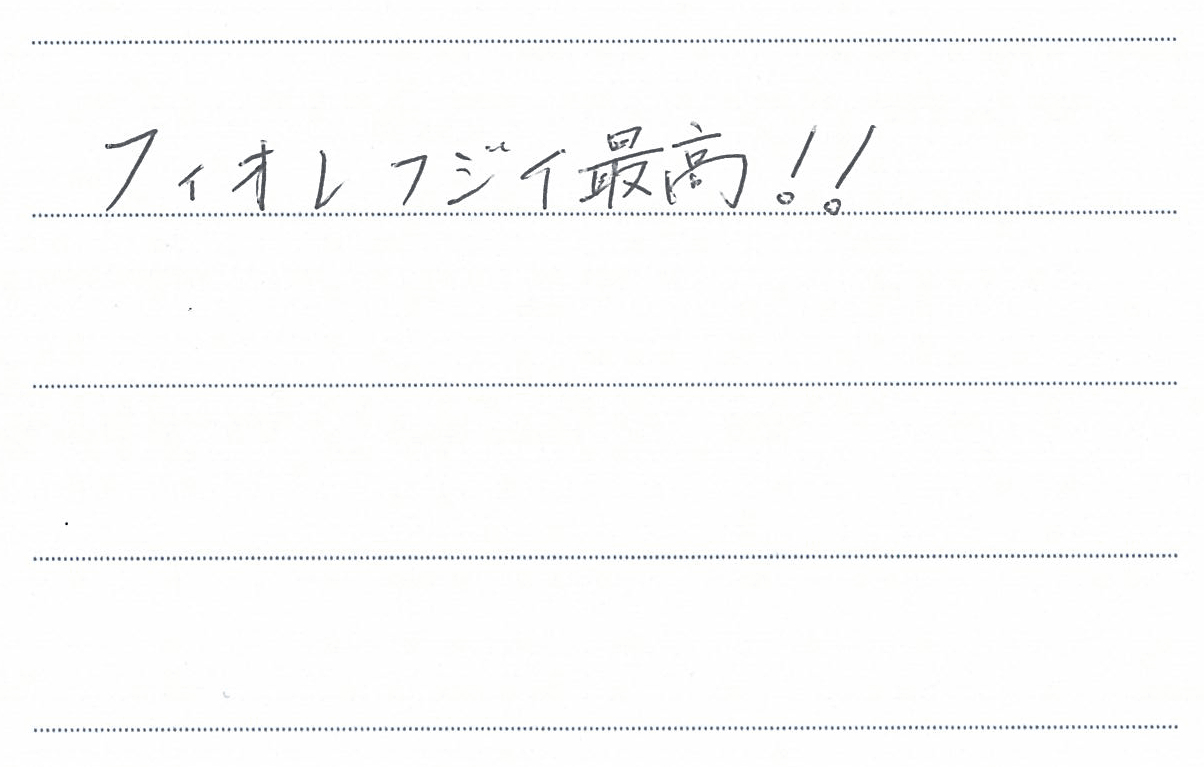 フィオレフジイ最高!!